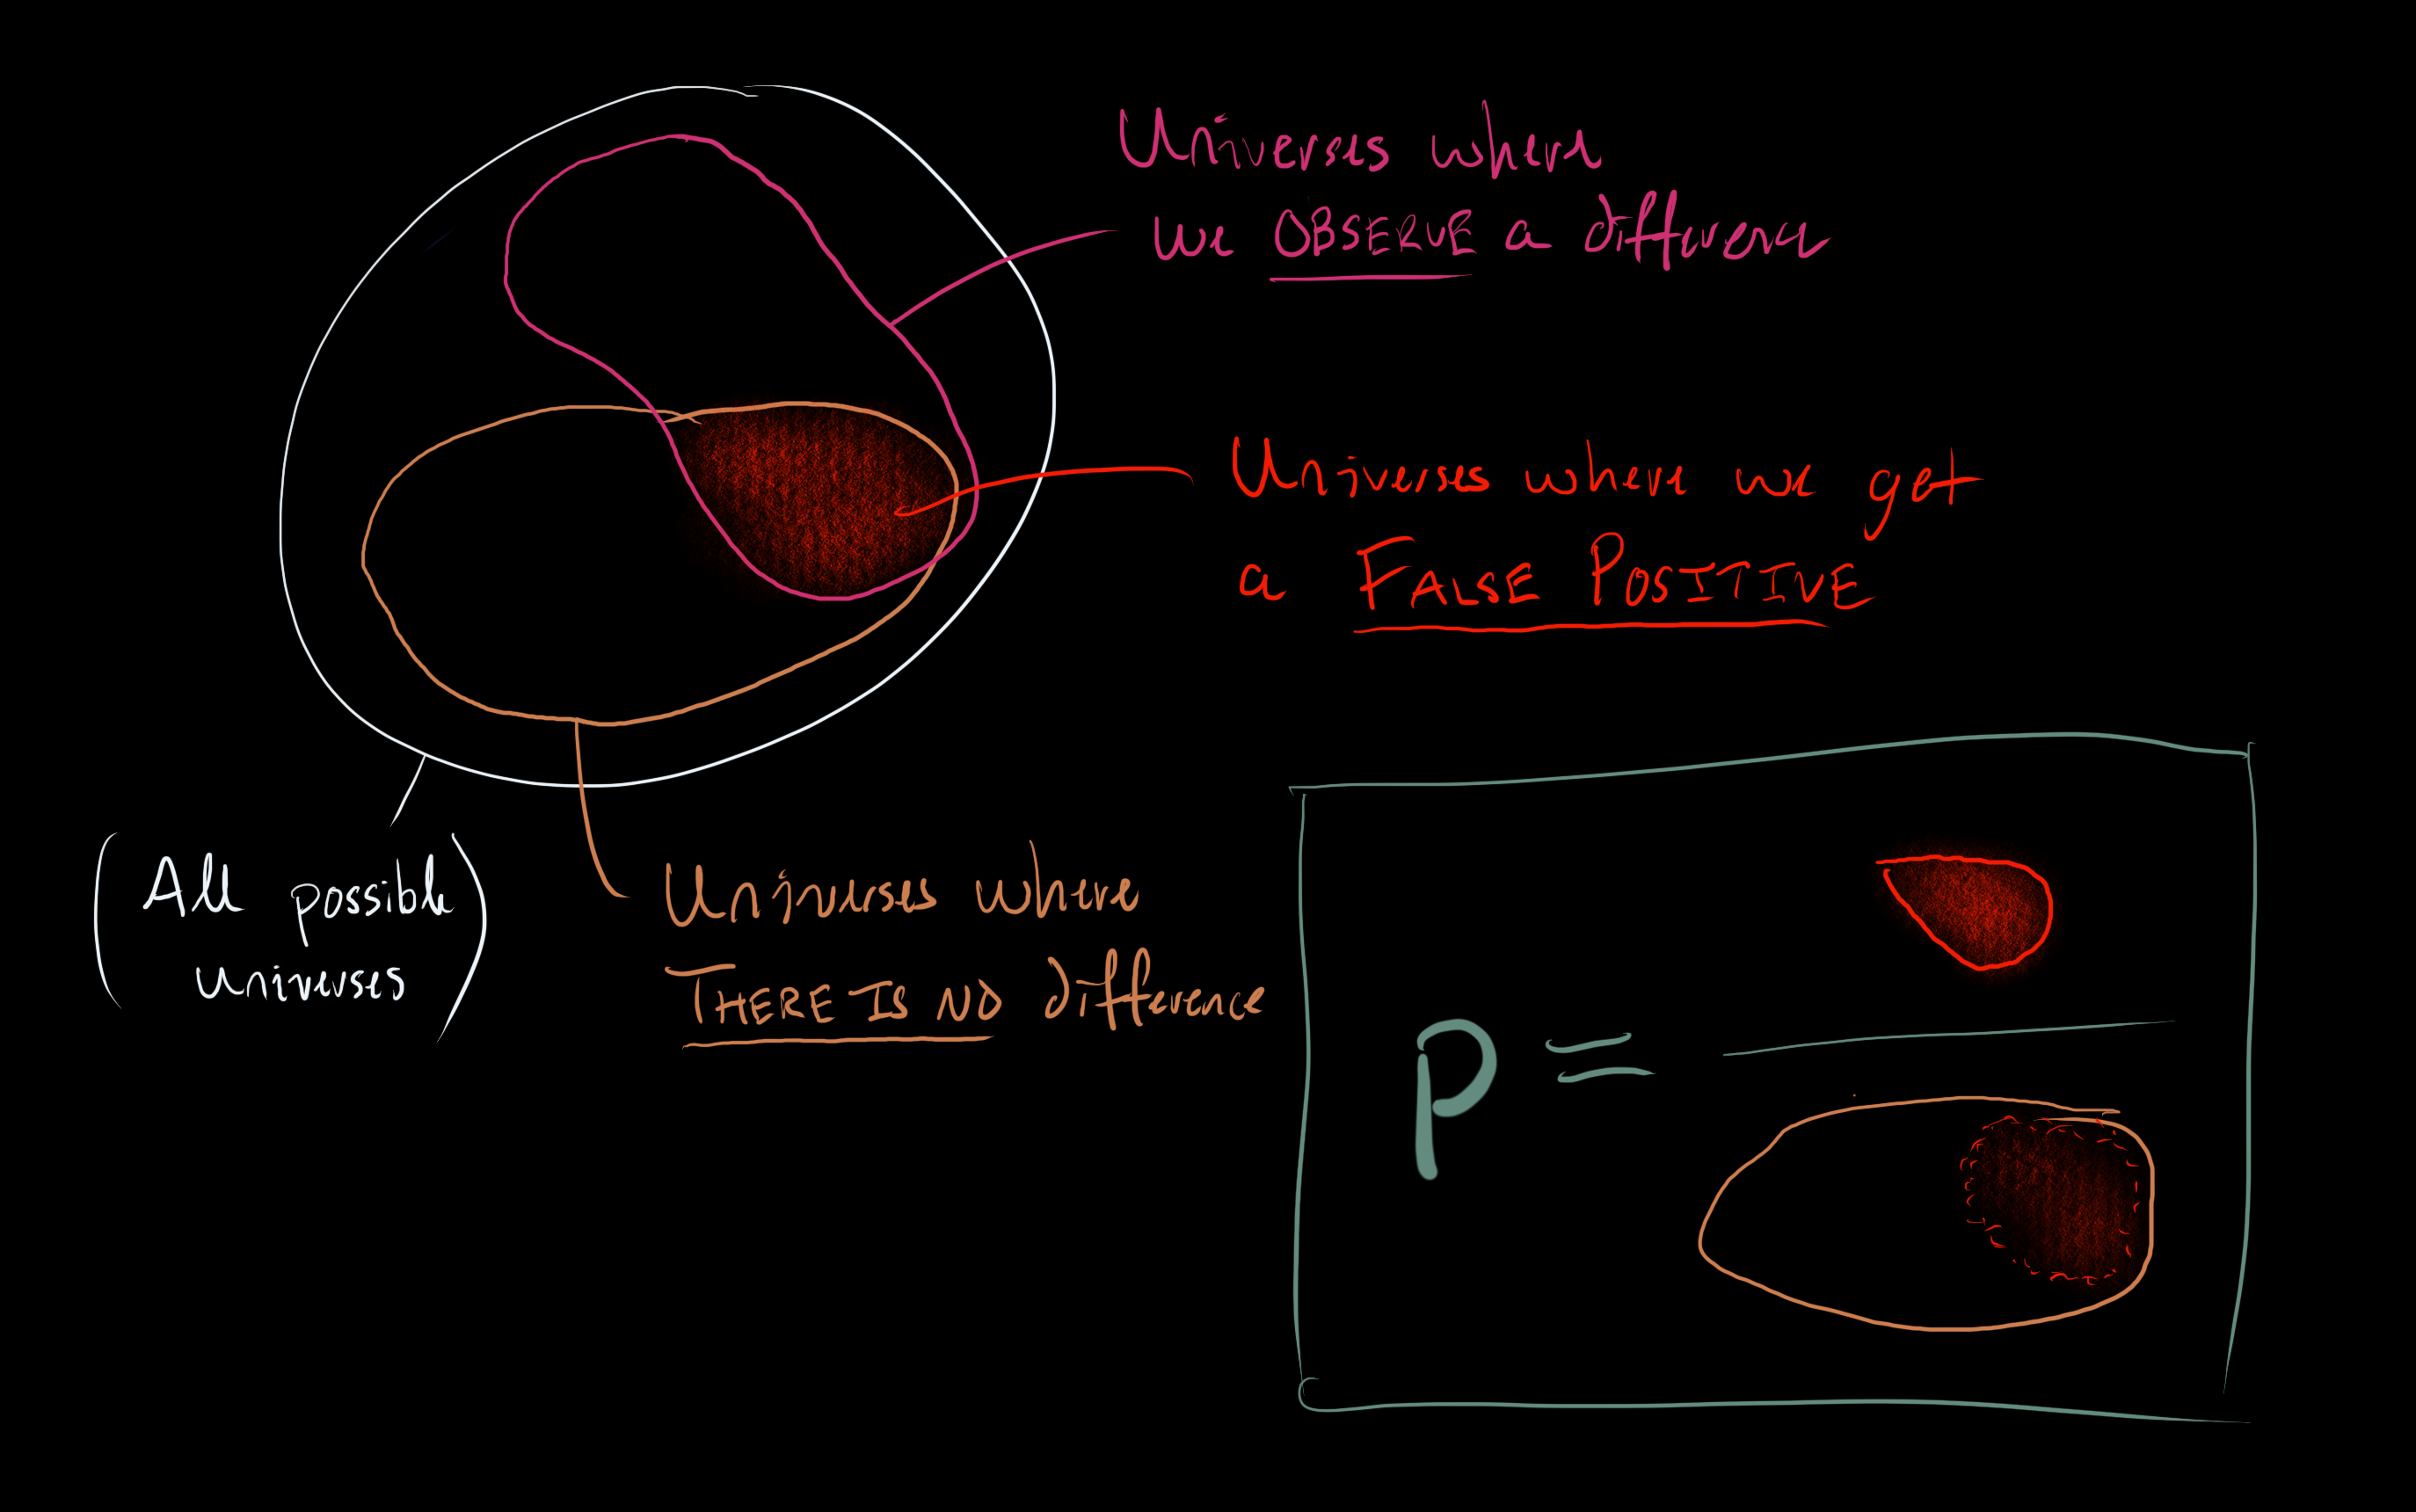 Universes where
we OBSERVE a difference
Universes where we get
a FALSE POSITIVE
(All possible
universes)
Universes where
THERE IS NO difference
p =